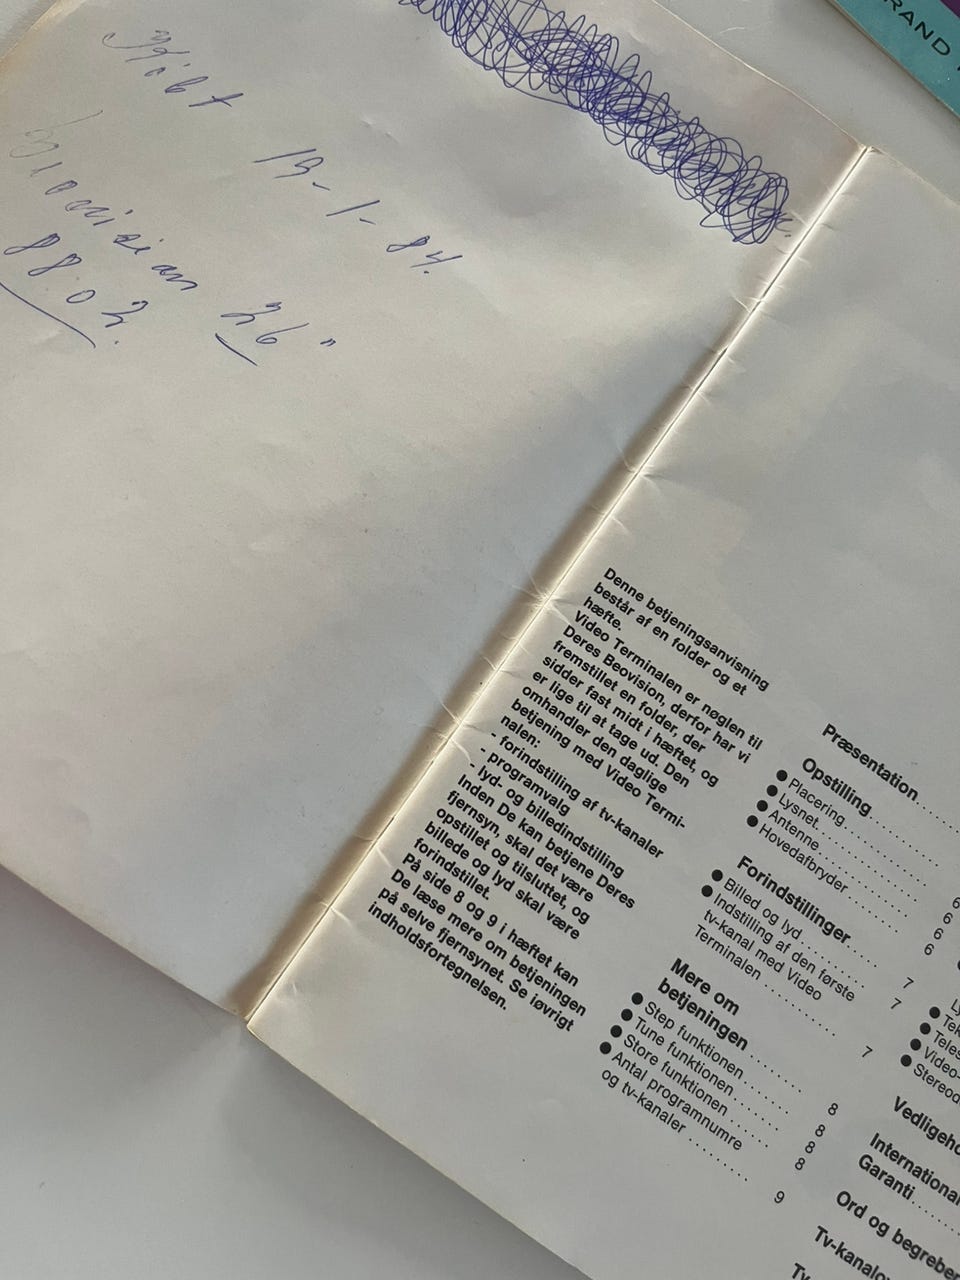 Købt 19-1-84.
Beovision 26"
8802.
RAND
Denne betjeningsanvisning
består af en folder og et
hæfte.
Video Terminalen er nøglen til
Deres Beovision, derfor har vi
fremstillet en folder, der
sidder fast midt i hæftet, og
er lige til at tage ud. Den
omhandler den daglige
betjening med Video Termi-
nalen:
- forindstilling af tv-kanaler
- programvalg
- lyd- og billedindstilling
Inden De kan betjene Deres
fjernsyn, skal det være
opstillet og tilsluttet, og
billede og lyd skal være
forindstillet.
På side 8 og 9 i hæftet kan
De læse mere om betjeningen
på selve fjernsynet. Se iøvrigt
indholdsfortegnelsen.
Præsentation
Opstilling
● Placering 6
● Lysnet 6
● Antenne 6
● Hovedafbryder 6
Forindstillinger
● Billed og lyd 7
● Indstilling af den første 7
tv-kanal med Video
Terminalen 7
Mere om
betjeningen
● Step funktionen 8
● Tune funktionen 8
● Store funktionen 8
● Antal programnumre 8
og tv-kanaler 9
● Tek
● Teles
● Video-
● Stereod
Vedligeho
International
Garanti
Ord og begrebe
Tv-kanalo